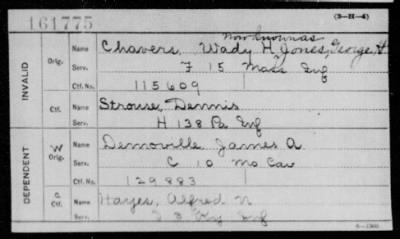 161775
(3-H-4)
now known as
INVALID
Orig.
Name
Chavers, Wady H. Jones, George H
Serv.
F 15 Mass Inf
Ctf. No.
115609
Ctf.
Name
Strouse, Dennis
Serv.
H 138 Pa Inf
DEPENDENT
W
Orig.
Name
Demoville, James A.
Serv.
C 10 Mo Cav
Ctf. No.
129883
C
Ctf.
Name
Hayes, Alfred N
Serv.
3 Inf